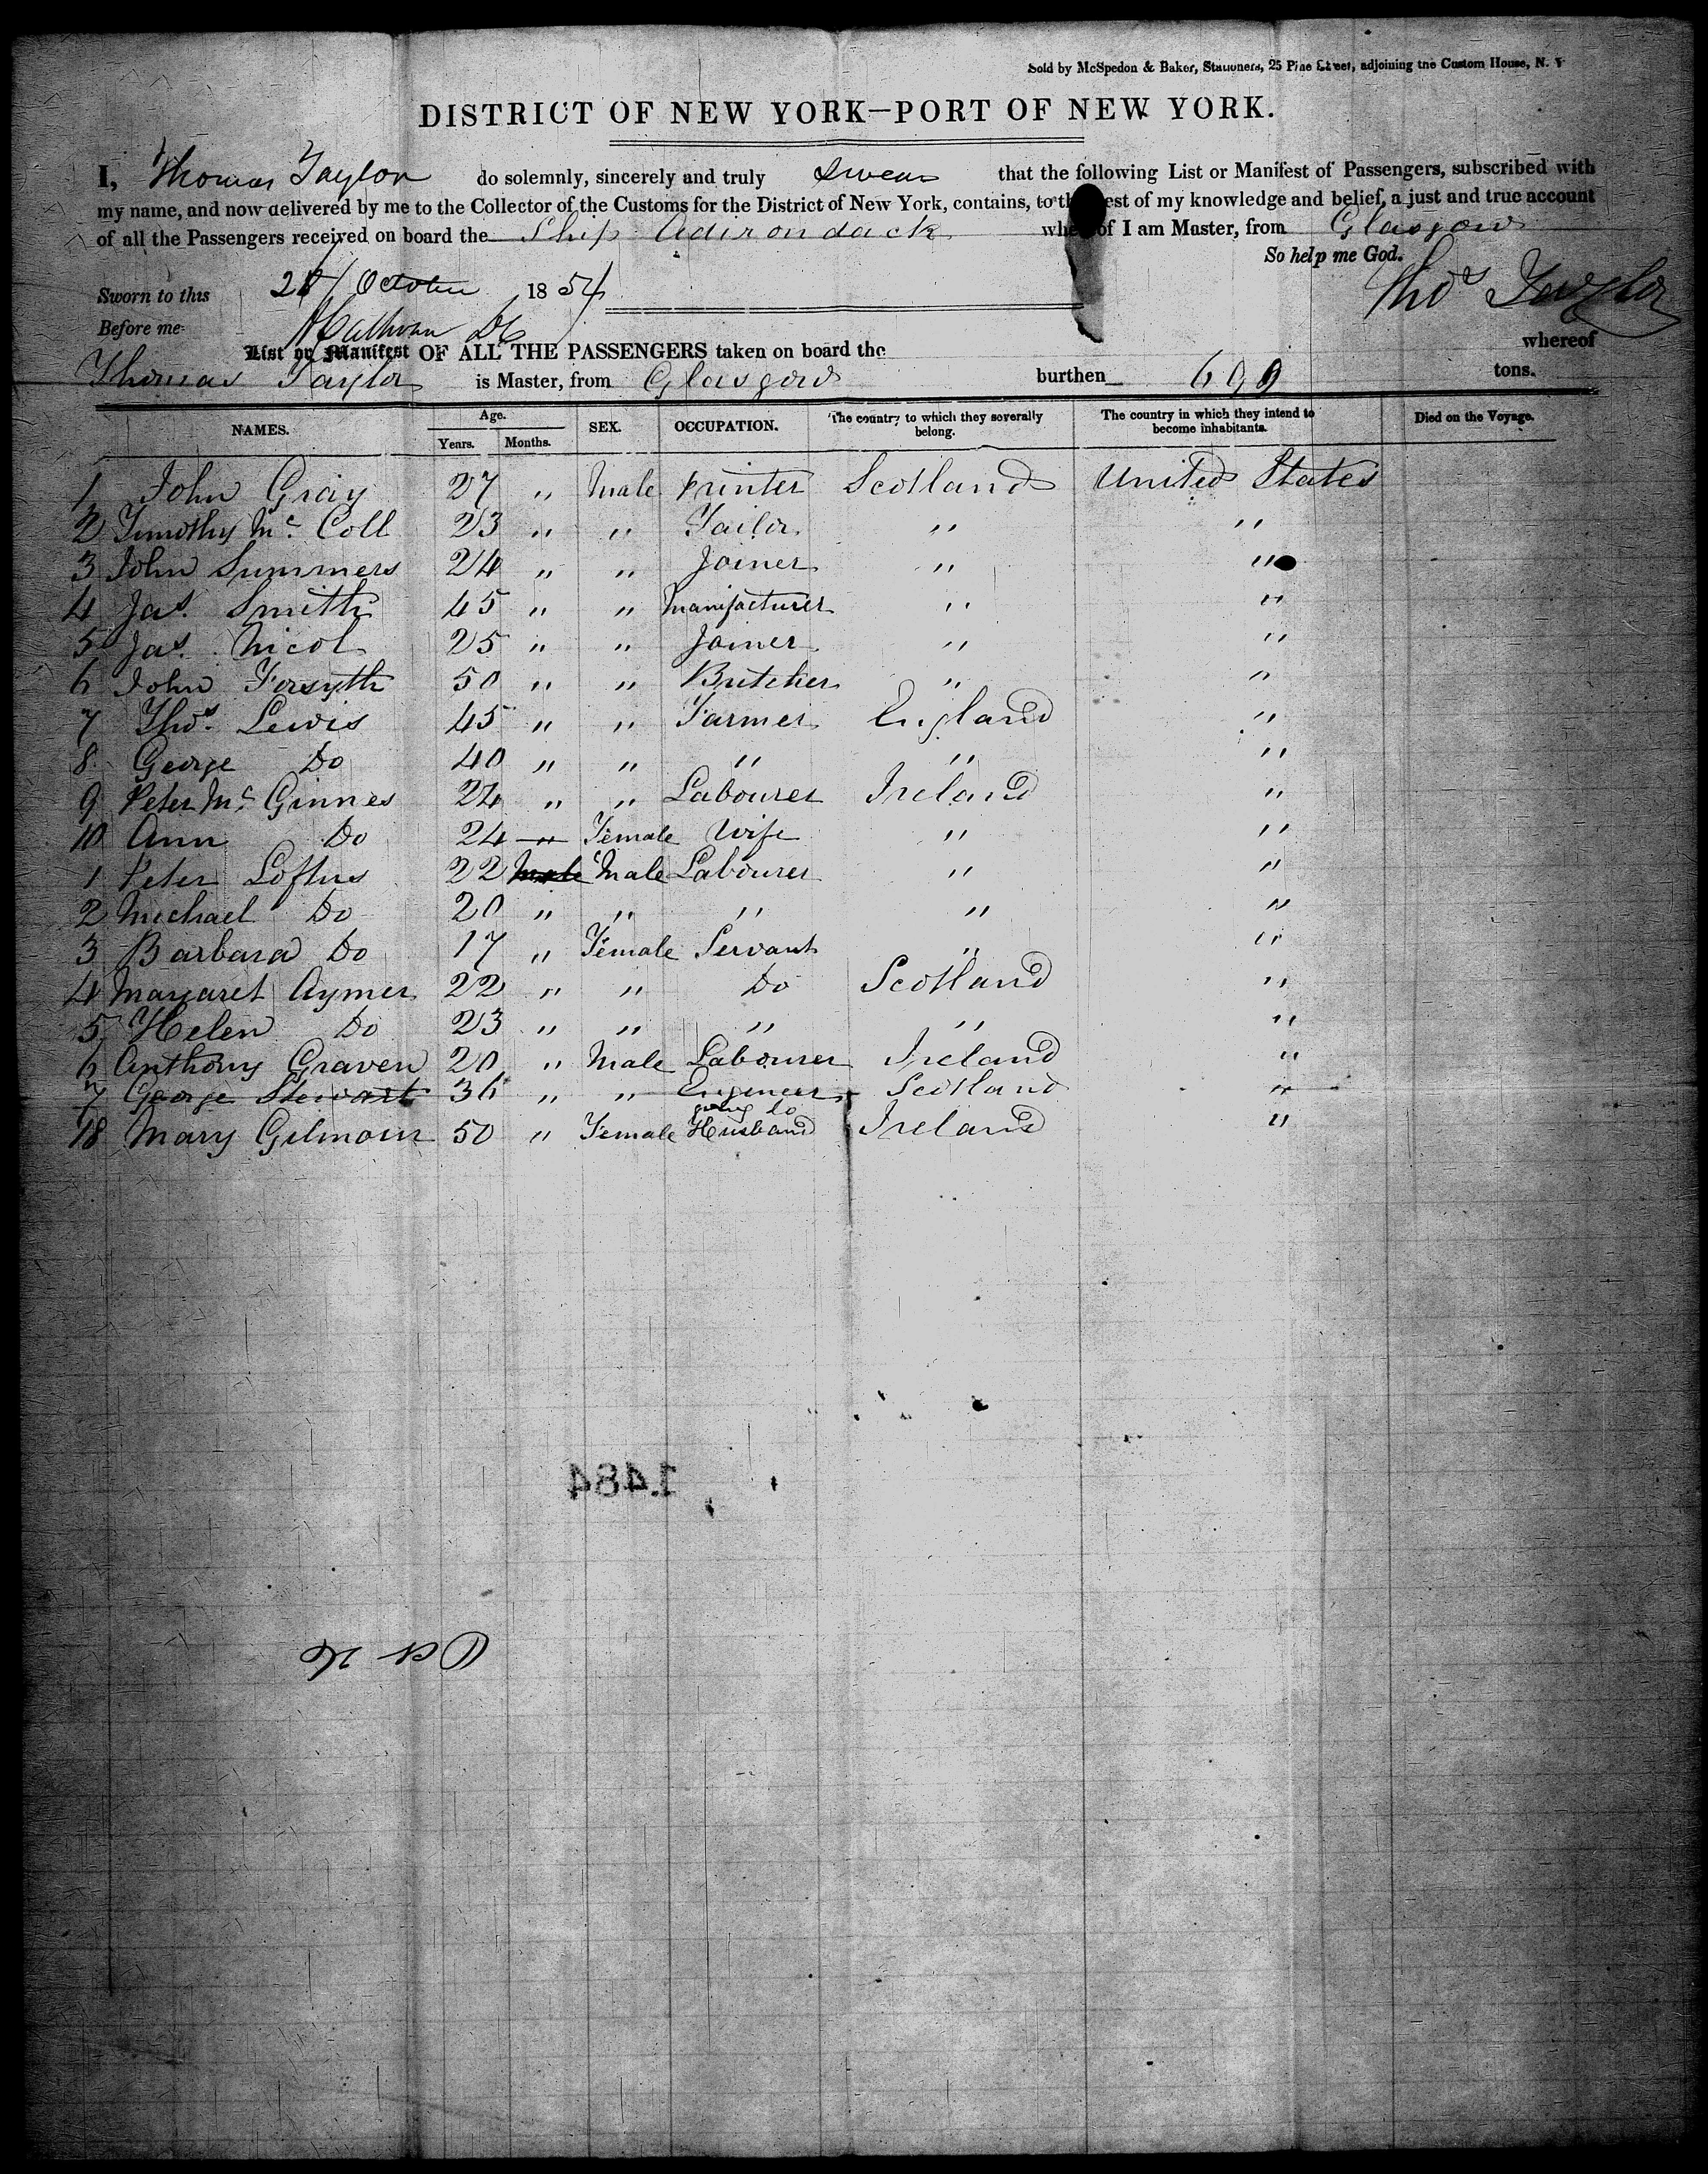 Sold by McSpedon & Baker, Stationers, 25 Pine Street, adjoining the Custom House, N. Y
DISTRICT OF NEW YORK—PORT OF NEW YORK.
I, Thomas Taylor do solemnly, sincerely and truly Swear that the following List or Manifest of Passengers, subscribed with
my name, and now delivered by me to the Collector of the Customs for the District of New York, contains, to th est of my knowledge and belief, a just and true account
of all the Passengers received on board the Ship Adirondack whe of I am Master, from Glasgow
So help me God.
Sworn to this October 1854 Thos Taylor
Before me
List or Manifest OF ALL THE PASSENGERS taken on board the whereof
Thomas Taylor is Master, from Glasgow burthen 699 tons.
NAMES. Age. Years. Months. SEX. OCCUPATION. The country to which they severally belong. The country in which they intend to become inhabitants. Died on the Voyage.
1 John Gray 27 " Male Printer Scotland United States
2 Timothy Mc Coll 23 " " Tailor " "
3 John Summers 24 " " Joiner " "
4 Jas. Smith 45 " " Manifacturer " "
5 Jas. Nicol 25 " " Joiner " "
6 John Forsyth 50 " " Butcher " "
7 Thos. Lewis 45 " " Farmer England "
8 George Do 40 " " " " "
9 Peter Mc Ginnes 24 " " Labourer Ireland "
10 Ann Do 24 " Female Wife " "
1 Peter Loftus 22 Male Male Labourer " "
2 Michael Do 20 " " " " "
3 Barbara Do 17 " Female Servant " "
4 Margaret Aymer 22 " " Do Scotland "
5 Helen Do 23 " " " " "
6 Anthony Graven 20 " Male Labourer Ireland "
7 George Stewart 36 " " Engineer Scotland "
18 Mary Gilmour 50 " Female going to Husband Ireland "
1484